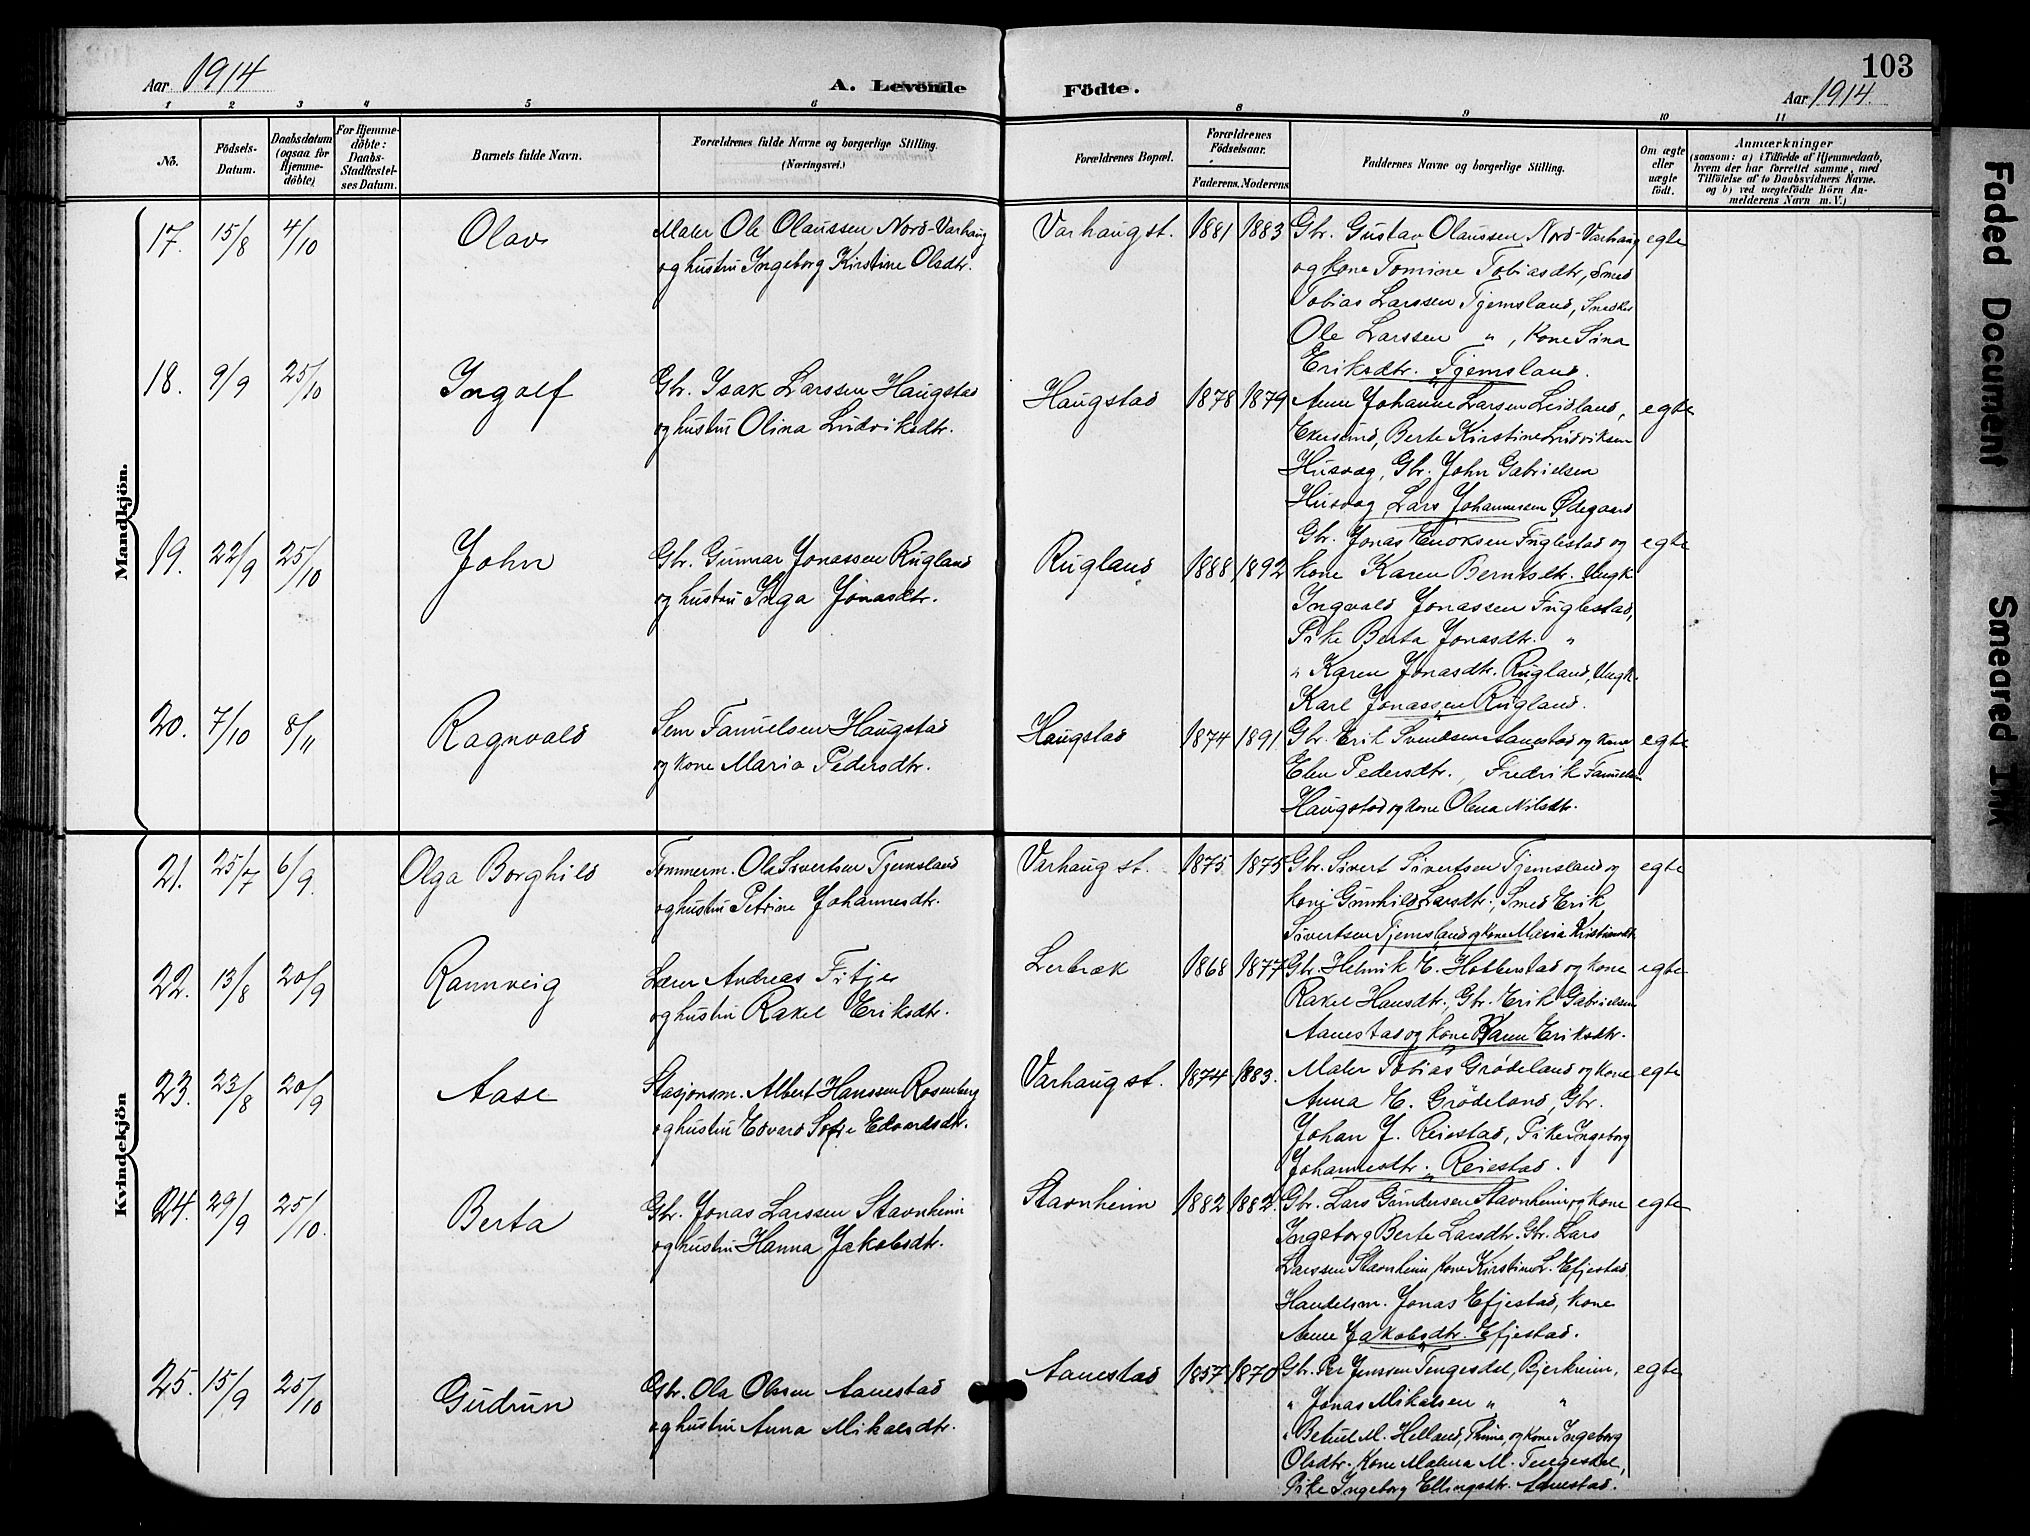 Aar 1914 A. Levende Födte. Aar 1914. 103
1 2 3 4 5 6 8 9 10 11
No. Födsels-Datum. Daabsdatum (ogsaa for Hjemmedöbte) For Hjemmedöbte: Daabs-Stadfæstelses Datum. Barnets fulde Navn. Forældrenes fulde Navne og borgerlige Stilling. (Næringsvei.) Forældrenes Bopæl. Forældrenes Födselsaar. Faderens. Moderens Faddernes Navne og borgerlige Stilling. Om ægte eller uægte födt. Anmærkninger (saasom: a) i Tilfælde af Hjemmedaab, hvem der har forrettet samme, med Tilföielse af to Daabsvidners Navne. og b) ved uægtefödte Börn Anmelderens Navn m. V.)
Mandkjön.
17. 15/8 4/10 Olav Maler Ole Olaussen Nord-Varhaug Varhaug st. 1881 1883 Gbr. Gustav Olaussen Nord-Varhaug egte
og hustru Ingeborg Kirstine Olsdtr. og kone Tomine Tobiasdtr, Smed
Tobias Larssen Tjemsland, Snedker
Ole Larssen " , kone Sina
Eriksdtr. Tjemsland.
18. 9/9 25/10 Ingolf Gbr. Isak Larssen Haugstad Haugstad 1878 1879 Anne Johanne Larsen Lindland, egte
og hustru Olina Ludviksdtr. Ekersund, Berte Kirstine Ludviksen
Husvæg, Gbr. John Gabrielsen
Husvæg, Lars Johannesen Ødegaard
19. 22/9 25/10 John Gbr. Gunnar Jonassen Rugland Rugland 1888 1892 Gbr. Jonas Enoksen Fuglestad og egte
og hustru Inga Jonasdtr. kone Karen Berntsdtr. Ungk.
Ingvald Jonassen Fuglestad,
Pike Berta Jonasdtr. "
" Karen Jonasdtr. Rugland, Ungk.
Karl Jonassen Rugland.
20. 7/10 8/11 Ragnvald Sem Fanuelsen Haugstad Haugstad 1874 1891 Gbr. Erik Svendsen Aanestad og kone egte
og kone Maria Pedersdtr. Elen Pedersdtr., Fredrik Fanuelsen
Haugstad og kone Olena Nilsdtr.
Kvindekjön
21. 25/7 6/9. Olga Borghild Tømmerm. Ole Sivertsen Tjemsland Varhaug st. 1875. 1875 Gbr. Sivert Sivertsen Tjemsland og egte
og hustru Petrine Johannesdtr. kone Gunhild Larsdtr., Smed Erik
Sivertsen Tjemsland og kone Maria Kristiansdtr.
22. 13/8 20/9 Rannveig Lærer Andreas Fitje Lerbræk 1868 1877 Gbr. Helmik E. Hobberstad og kone egte
og hustru Rakel Eriksdtr. Rakel Hansdtr., Gbr. Erik Gabrielsen
Aanestad og kone Karen Eriksdtr.
23. 23/8 20/9 Aase Stasjonsm. Albert Hanssen Rosenberg Varhaug st. 1874 1883. Maler Tobias Grødeland og kone egte
og hustru Edvard Sofie Edvardsdtr. Anna E. Grødeland, Gbr.
Johan J. Reiestad, Pike Ingeborg
Johannesdtr. Reiestad.
24. 29/9 25/10. Berta Gbr. Jonas Larssen Stavnheim Stavnheim 1882 1882. Gbr. Lars Gundersen Stavnheim og kone egte
og hustru Hanna Jakobsdtr. Ingeborg Berte Larsdtr. Gbr. Lars
Larssen Stavnheim, kone Kirstine L. Efjestad,
Handelsm. Jonas Efjestad, kone
Anne Jakobsdtr. Efjestad.
25. 15/9 25/10 Gudrun Gbr. Ola Olssen Aanestad Aanestad 1857 1870 Gbr. Per Jenssen Tengesdal, Bjerkreim, egte
og hustru Anna Mikalsdtr. " Jonas Mikalsen " "
" Betuel M. Helland, Thime, og kone Ingeborg
Olsdtr. Kone Malena M. Tengesdal,
Pike Ingeborg Ellingsdtr. Aanestad.
Faded Document
Smeared Ink